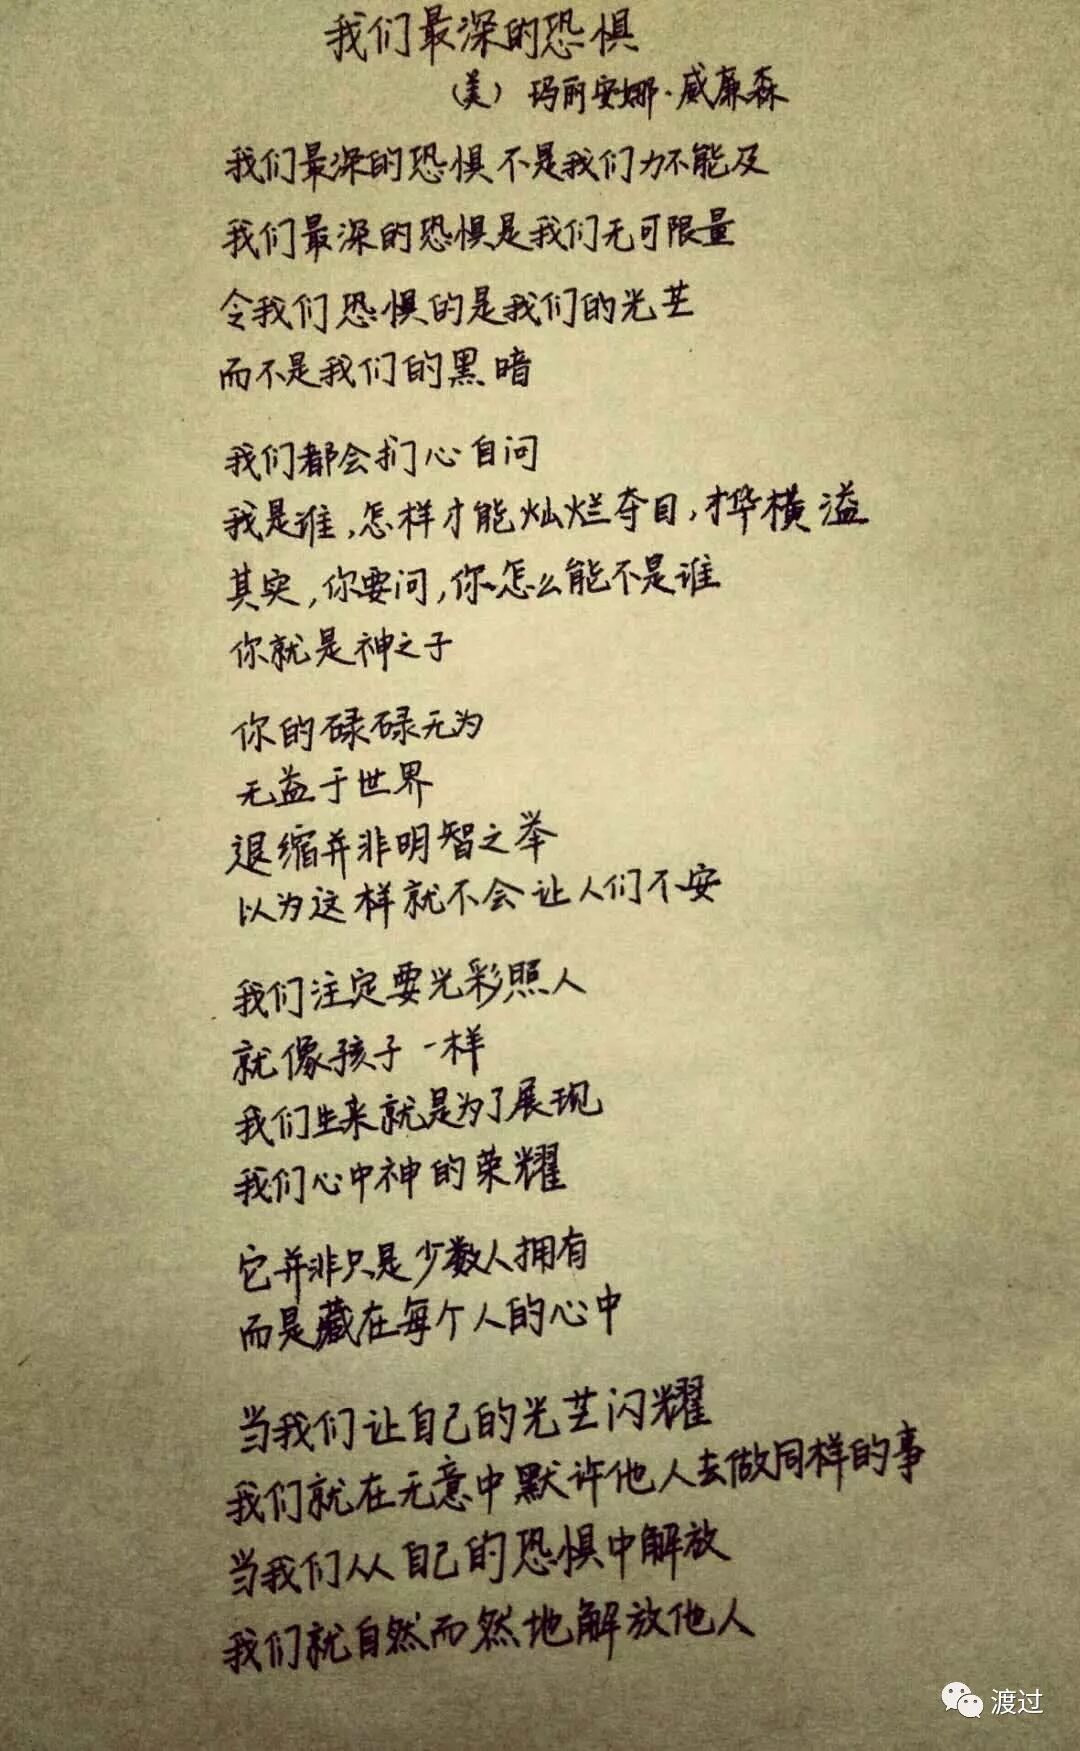 我们最深的恐惧
(美) 玛丽安娜·威廉森
我们最深的恐惧不是我们力不能及
我们最深的恐惧是我们无可限量
令我们恐惧的是我们的光芒
而不是我们的黑暗
我们都会扪心自问
我是谁,怎样才能灿烂夺目,才华横溢
其实,你要问,你怎么能不是谁
你就是神之子
你的碌碌无为
无益于世界
退缩并非明智之举
以为这样就不会让人们不安
我们注定要光彩照人
就像孩子一样
我们生来就是为了展现
我们心中神的荣耀
它并非只是少数人拥有
而是藏在每个人的心中
当我们让自己的光芒闪耀
我们就在无意中默许他人去做同样的事
当我们从自己的恐惧中解放
我们就自然而然地解放他人
渡过